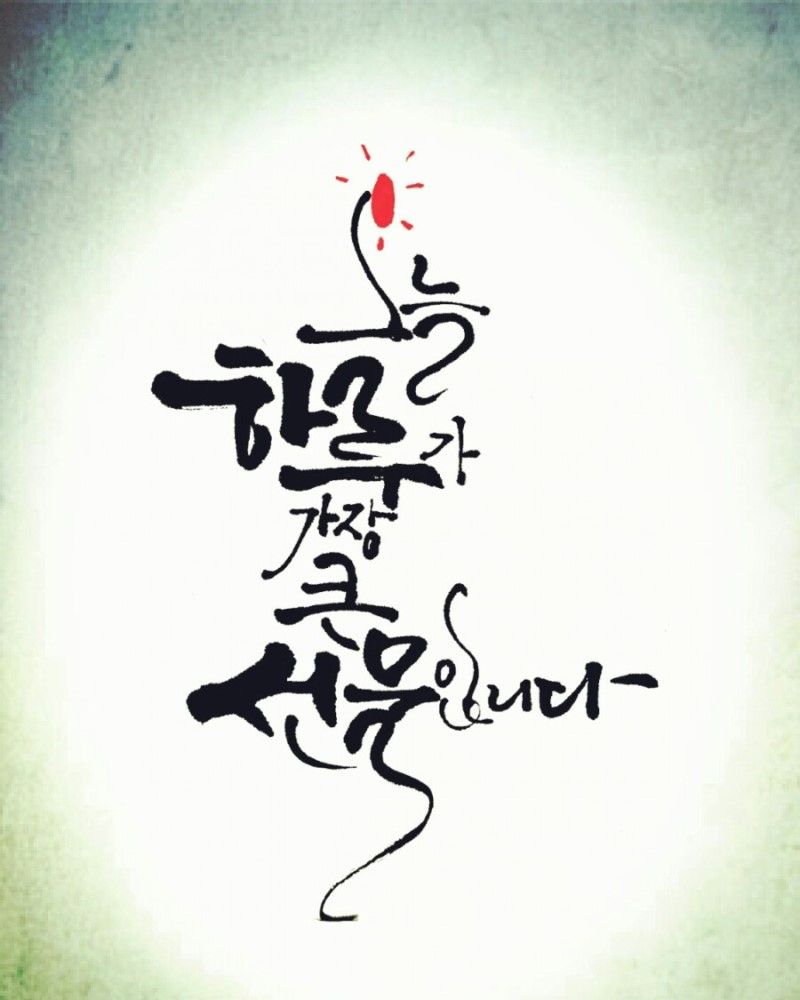 오늘
하루가
가장
큰
선물입니다